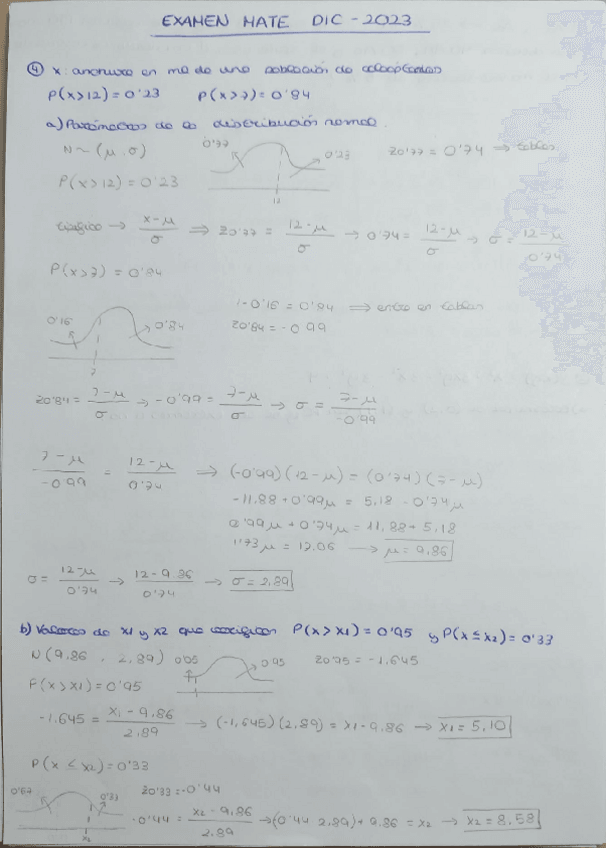 EXAMEN MATE DIC - 2023
④ x: anchura en mm de una población de
P(x>12) = 0'23 P(x>7) = 0'84
a) Parámetros de la distribución normal.
N ~ (μ, σ) 0'77 0'23 z0'77 = 0'74 ⇒ tablas
12
P(x>12) = 0'23
tipifico → x-μ/σ ⇒ z0'77 = 12-μ/σ → 0'74 = 12-μ/σ → σ = 12-μ/0'74
P(x>7) = 0'84
0'16 0'84 1-0'16 = 0'84 ⇒ entro en tablas
z0'84 = -0'99
7
z0'84 = 7-μ/σ → -0'99 = 7-μ/σ → σ = 7-μ/-0'99
7-μ/-0'99 = 12-μ/0'74 ⇒ (-0'99)(12-μ) = (0'74)(7-μ)
-11.88 + 0'99μ = 5.18 - 0'74μ
0'99μ + 0'74μ = 11.88 + 5.18
1'73μ = 17.06 → μ = 9.86
σ = 12-μ/0'74 → 12-9.86/0'74 → σ = 2,89
b) Valores de x1 y x2 que verifican P(x > x1) = 0'95 y P(x ≤ x2) = 0'33
N(9.86, 2,89) 0'05 0'95 z0'95 = -1.645
P(x > x1) = 0'95
-1.645 = x1 - 9.86/2.89 → (-1,645)(2,89) = x1 - 9.86 → x1 = 5,10
P(x ≤ x2) = 0'33
0'67 0'33 z0'33 = -0'44
x2
-0'44 = x2 - 9.86/2.89 → (0'44 2,89) + 9.86 = x2 → x2 = 8,58